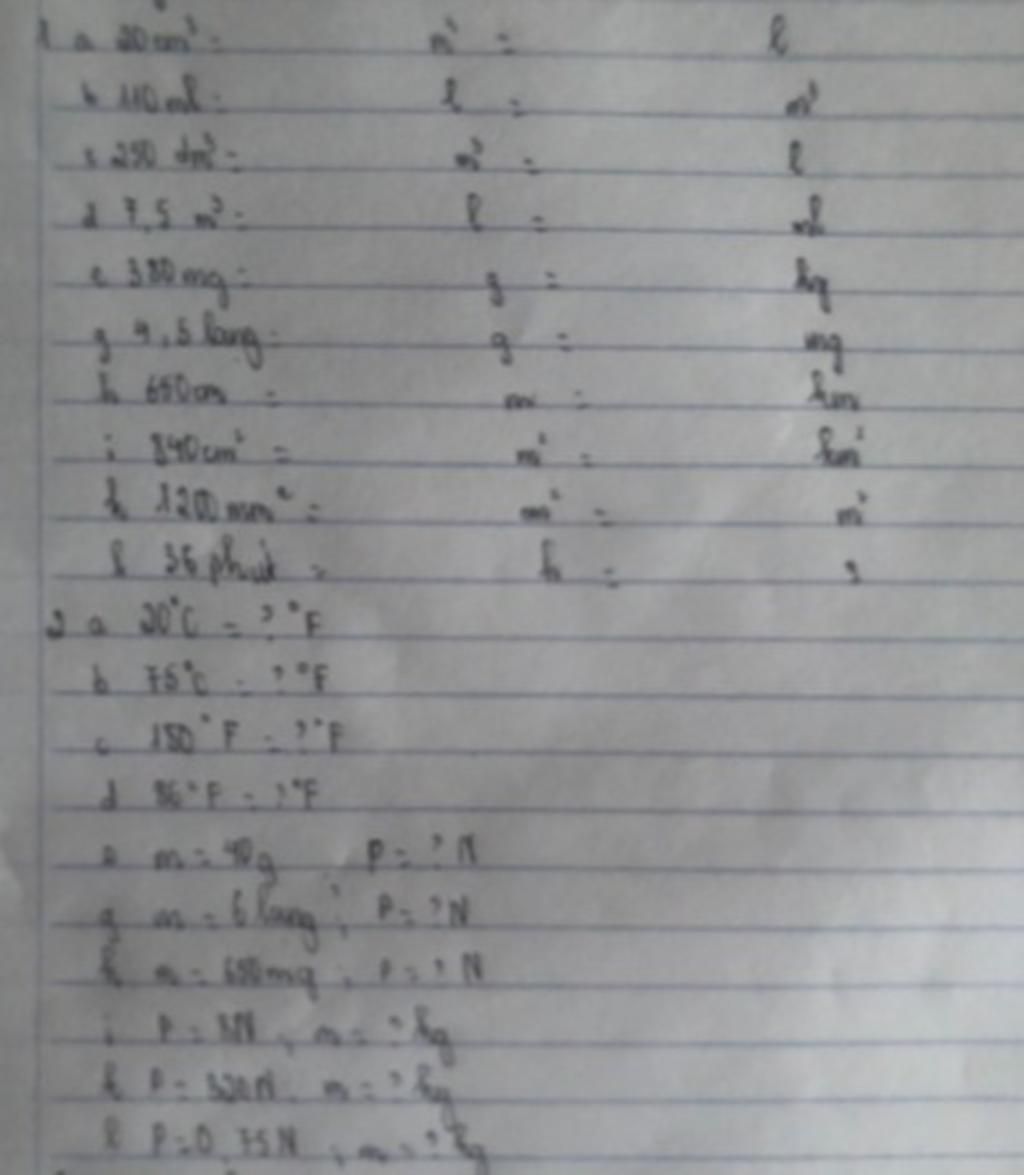 1 a 20cm³ = m³ = l
b 110ml = l = m³
c 250 dm³ = m³ = l
d 7,5 m³ = l = ml
e 380mg = g = kg
g 4,5 lang = g = mg
h 650cm = m = km
i 840cm² = m² = km²
k 1200mm² = m² = m²
l 36 phút = h =
2 a 20°C = ? °F
b 75°C = ? °F
c 180°F = ? °F
d 86°F = ? °F
e m = 40g P = ? N
g m = 6 lang ; P = ? N
h m = 650mg ; P = ? N
i P = N ; m = ? kg
k P = 320N m = ? kg
l P = 0,75N ; m = ? kg